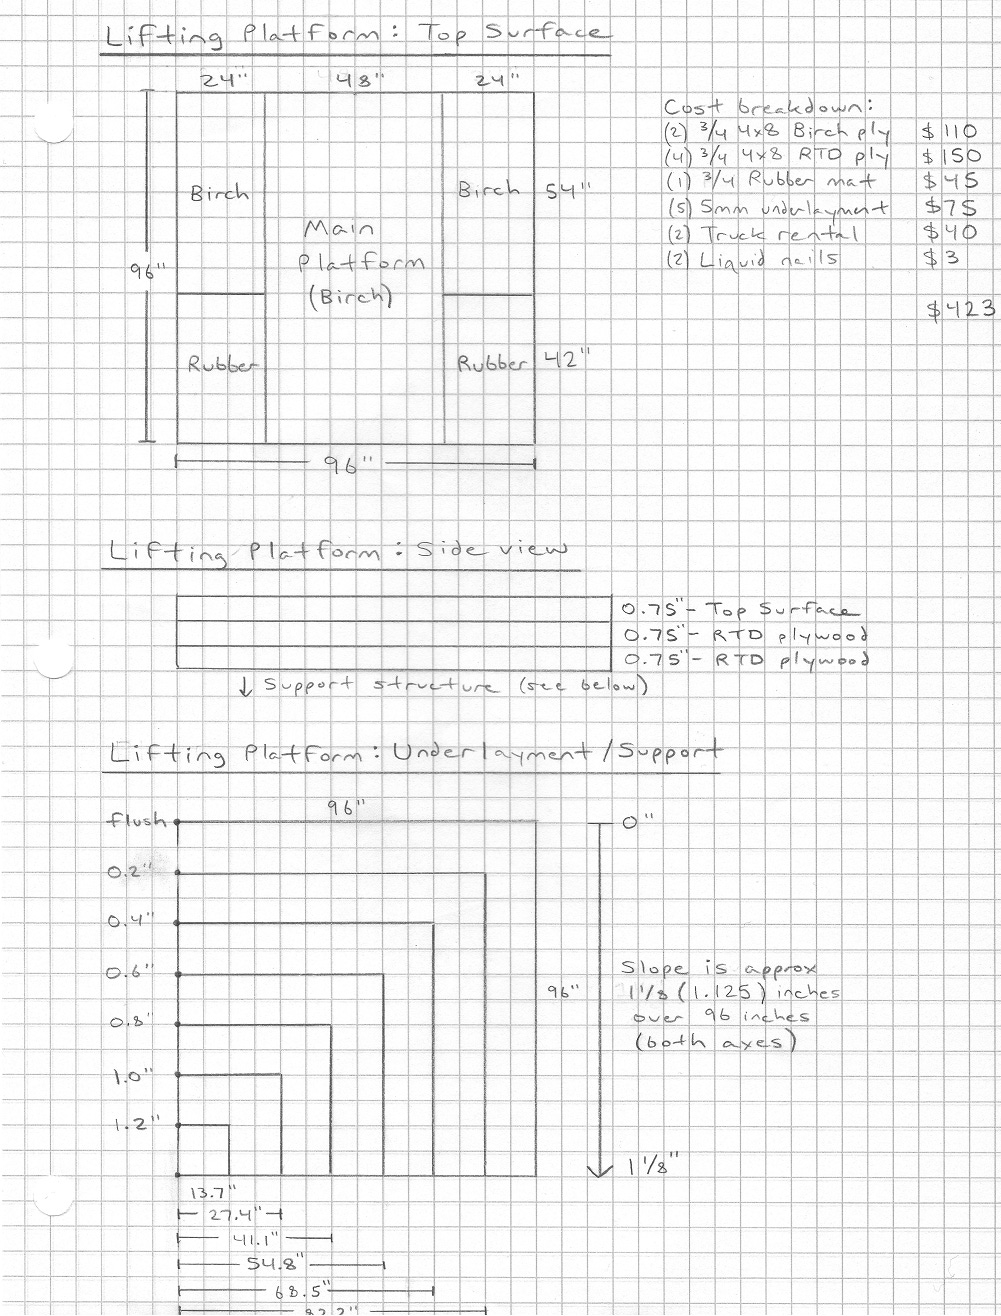 Lifting Platform: Top Surface
24" 48" 24"
Cost breakdown:
(2) 3/4 4x8 Birch ply $110
(4) 3/4 4x8 RTD ply $150
(1) 3/4 Rubber mat $45
(5) 5mm underlayment $75
(2) Truck rental $40
(2) Liquid nails $3
$423
Birch
Birch
54"
Main
Platform
(Birch)
96"
Rubber
Rubber
42"
96"
Lifting Platform: Side view
0.75" - Top Surface
0.75" - RTD plywood
0.75" - RTD plywood
↓ Support structure (see below)
Lifting Platform: Underlayment/Support
96"
flush
0"
0.2"
0.4"
0.6"
0.8"
1.0"
1.2"
96"
Slope is approx
1 1/8 (1.125) inches
over 96 inches
(both axes)
1 1/8"
13.7"
27.4"
41.1"
54.8"
68.5"
82.2"